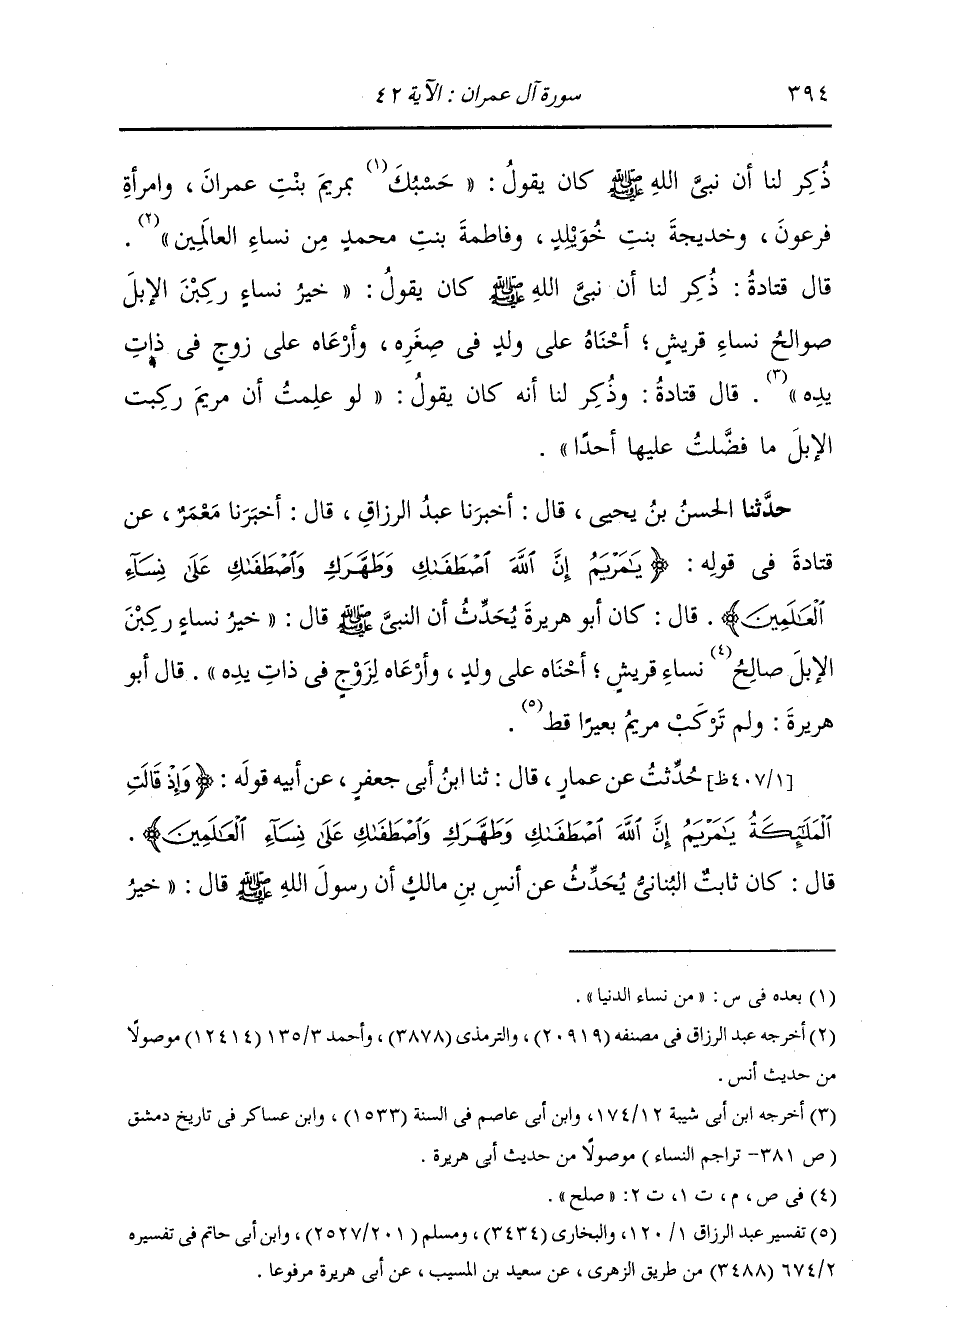 ٣٩٤
سورة آل عمران : الآية ٤٢
ذُكِر لنا أن نبىَّ اللهِ ﷺ كان يقولُ : « حَسْبُكَ(١) بمريمَ بنْتِ عمرانَ ، وامرأةِ
فرعونَ ، وخديجةَ بنتِ خُوَيْلِدٍ ، وفاطمةَ بنتِ محمدٍ مِن نساءِ العالَمِين »(٢) .
قال قتادةُ : ذُكِر لنا أن نبىَّ اللهِ ﷺ كان يقولُ : « خيرُ نساءٍ ركِبْنَ الإبلَ
صوالحُ نساءِ قريشٍ ؛ أحْنَاهُ على ولدٍ فى صِغَرِه ، وأرْعَاه على زوجٍ فى ذاتِ
يدِه »(٣) . قال قتادةُ : وذُكِر لنا أنه كان يقولُ : « لو علِمتُ أن مريمَ ركِبت
الإبلَ ما فضَّلتُ عليها أحدًا » .
حدَّثنا الحسنُ بنُ يحيى ، قال : أخبرَنا عبدُ الرزاقِ ، قال : أخبَرَنا مَعْمَرٌ ، عن
قتادةَ فى قولِه : ﴿ يَـٰمَرْيَمُ إِنَّ ٱللَّهَ ٱصْطَفَىٰكِ وَطَهَّرَكِ وَٱصْطَفَىٰكِ عَلَىٰ نِسَآءِ
ٱلْعَـٰلَمِينَ ﴾ . قال : كان أبو هريرةَ يُحَدِّثُ أن النبىَّ ﷺ قال : « خيرُ نساءٍ ركِبْنَ
الإبلَ صالِحُ(٤) نساءِ قريشٍ ؛ أحْنَاه على ولدٍ ، وأرْعَاه لِزَوْجٍ فى ذاتِ يدِه » . قال أبو
هريرةَ : ولم تَرْكَبْ مريمُ بعيرًا قط(٥) .
[٤٠٧/١ظ] حُدِّثتُ عن عمارٍ ، قال : ثنا ابنُ أبى جعفرٍ ، عن أبيه قولَه : ﴿ وَإِذْ قَالَتِ
ٱلْمَلَـٰٓئِكَةُ يَـٰمَرْيَمُ إِنَّ ٱللَّهَ ٱصْطَفَىٰكِ وَطَهَّرَكِ وَٱصْطَفَىٰكِ عَلَىٰ نِسَآءِ ٱلْعَـٰلَمِينَ ﴾ .
قال : كان ثابتٌ البُنانىُّ يُحَدِّثُ عن أنسِ بنِ مالكٍ أن رسولَ اللهِ ﷺ قال : « خيرُ
(١) بعده فى س : « من نساء الدنيا » .
(٢) أخرجه عبد الرزاق فى مصنفه (٢٠٩١٩) ، والترمذى (٣٨٧٨) ، وأحمد ١٣٥/٣ (١٢٤١٤) موصولًا
من حديث أنس .
(٣) أخرجه ابن أبى شيبة ١٧٤/١٢ ، وابن أبى عاصم فى السنة (١٥٣٣) ، وابن عساكر فى تاريخ دمشق
( ص ٣٨١- تراجم النساء ) موصولًا من حديث أبى هريرة .
(٤) فى ص ، م ، ت ١ ، ت ٢ : « صلح » .
(٥) تفسير عبد الرزاق ١/ ١٢٠ ، والبخارى (٣٤٣٤) ، ومسلم (٢٥٢٧/٢٠١) ، وابن أبى حاتم فى تفسيره
٦٧٤/٢ (٣٤٨٨) من طريق الزهرى ، عن سعيد بن المسيب ، عن أبى هريرة مرفوعا .